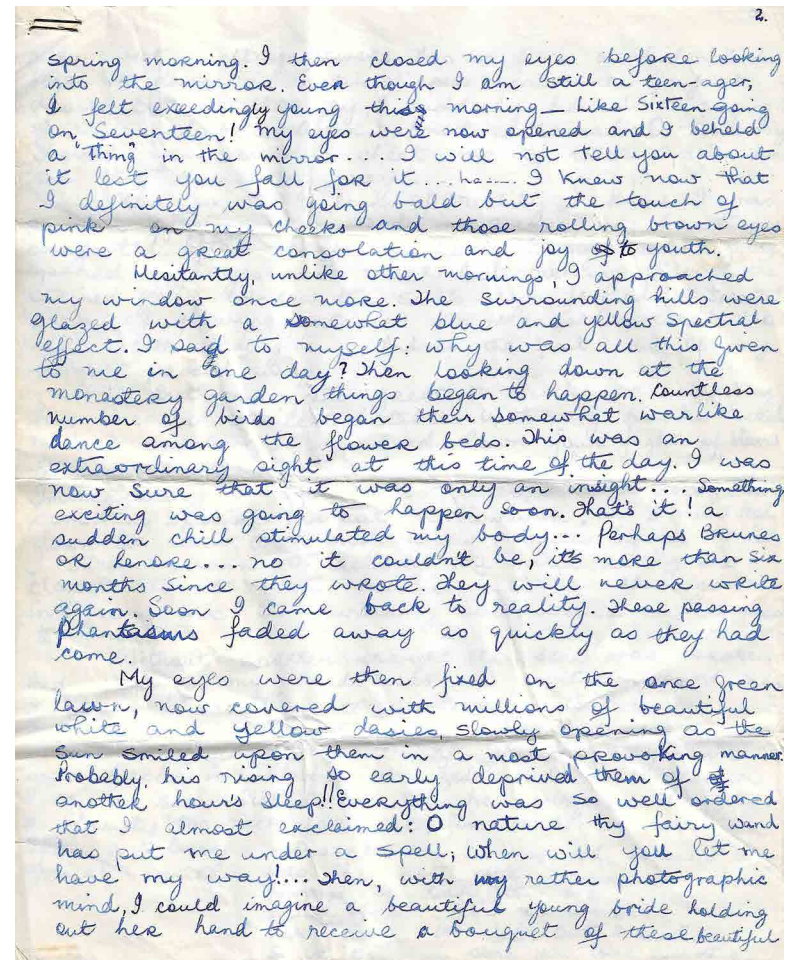 2.
spring morning. I then closed my eyes before looking
into the mirror. Even though I am still a teen-ager,
I felt exceedingly young this morning — Like Sixteen going
on Seventeen! My eyes were now opened and I beheld
a "Thing" in the mirror.... I will not tell you about
it lest you fall for it ... ha.... I knew now that
I definitely was going bald but the touch of
pink on my cheeks and those rolling brown eyes
were a great consolation and joy to youth.
Hesitantly, unlike other mornings, I approached
my window once more. The surrounding hills were
glazed with a somewhat blue and yellow spectral
effect. I said to myself: why was all this given
to me in one day? Then looking down at the
monastery garden things began to happen. Countless
number of birds began their somewhat warlike
dance among the flower beds. This was an
extraordinary sight at this time of the day. I was
now sure that it was only an insight... Something
exciting was going to happen soon. That's it! a
sudden chill stimulated my body... Perhaps Brunes
or Lenore... no it couldn't be, it's more than six
months since they wrote. They will never write
again. Soon I came back to reality. These passing
phantasms faded away as quickly as they had
come.
My eyes were then fixed on the once green
lawn, now covered with millions of beautiful
white and yellow dasies, slowly opening as the
sun smiled upon them in a most provoking manner.
Probably, his rising so early deprived them of
another hour's sleep!! Everything was so well ordered
that I almost exclaimed: O nature thy fairy wand
has put me under a spell; when will you let me
have my way!... Then, with my rather photographic
mind, I could imagine a beautiful young bride holding
out her hand to receive a bouquet of these beautiful